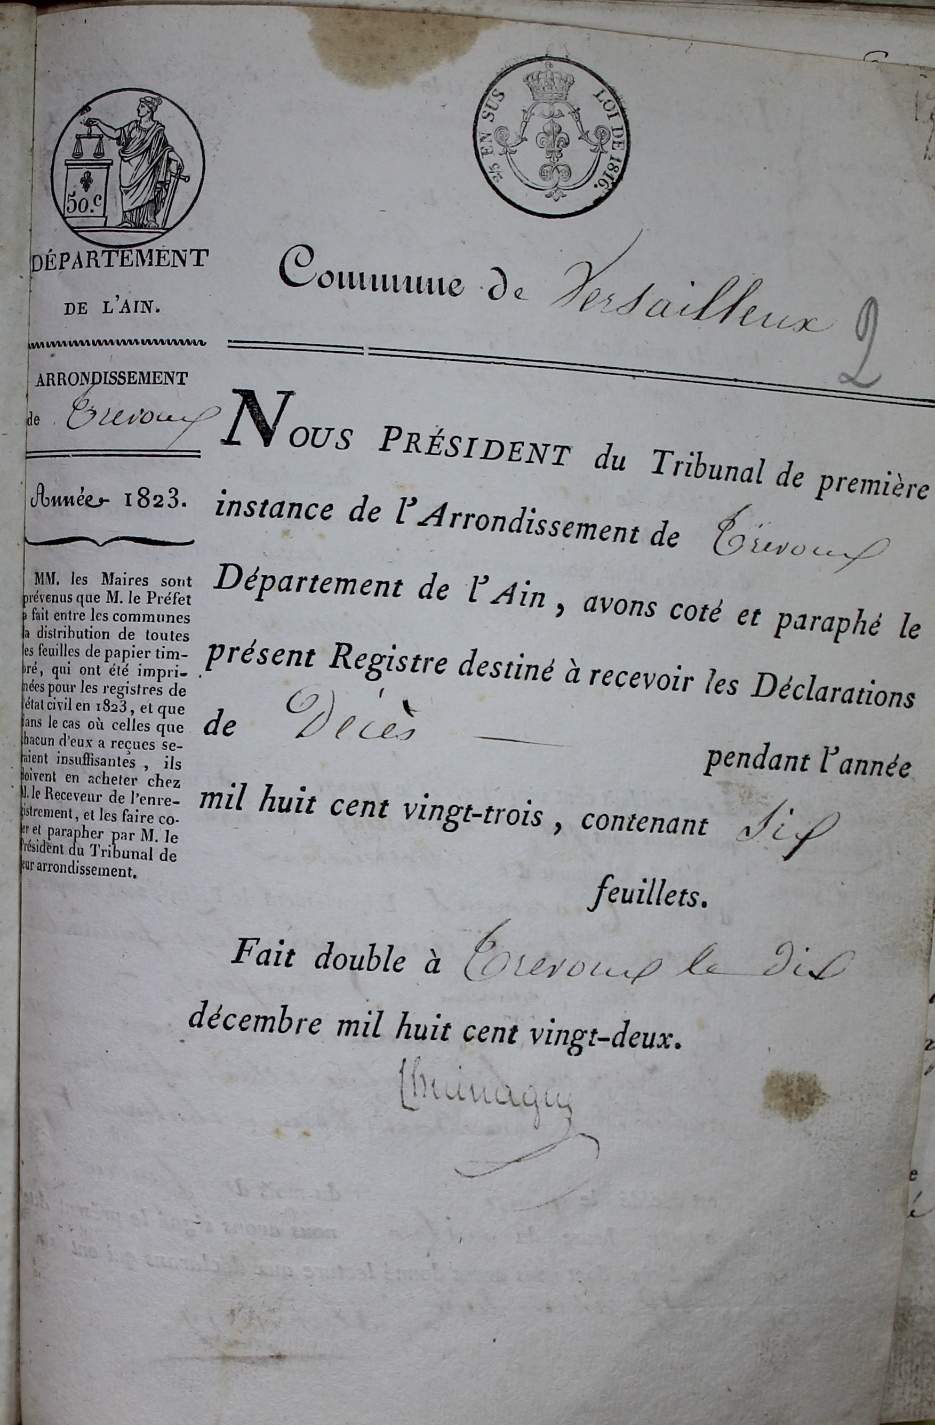 50.c
2/5 EN SUS LOI DE 1816.
DÉPARTEMENT
DE L'AIN.
Commune de Versailleux
2
ARRONDISSEMENT
de Trevoux
Année 1823.
MM. les Maires sont
prévenus que M. le Préfet
a fait entre les communes
la distribution de toutes
les feuilles de papier tim-
bré, qui ont été impri-
mées pour les registres de
l'état civil en 1823, et que
dans le cas où celles que
chacun d'eux a reçues se-
raient insuffisantes, ils
doivent en acheter chez
M. le Receveur de l'enre-
gistrement, et les faire co-
ter et parapher par M. le
Président du Tribunal de
leur arrondissement.
NOUS PRÉSIDENT du Tribunal de première
instance de l'Arrondissement de Trevoux
Département de l'Ain, avons coté et paraphé le
présent Registre destiné à recevoir les Déclarations
de Décès — pendant l'année
mil huit cent vingt-trois, contenant Six
feuillets.
Fait double à Trevoux le dix
décembre mil huit cent vingt-deux.